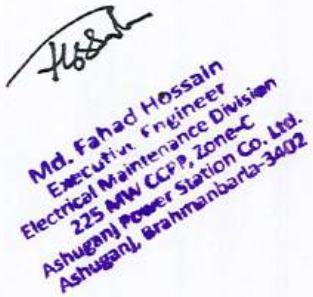 Hossain
Md. Fahad Hossain
Executive Engineer
Electrical Maintenance Division
225 MW CCPP, Zone-C
Ashuganj Power Station Co. Ltd.
Ashuganj, Brahmanbaria-3402